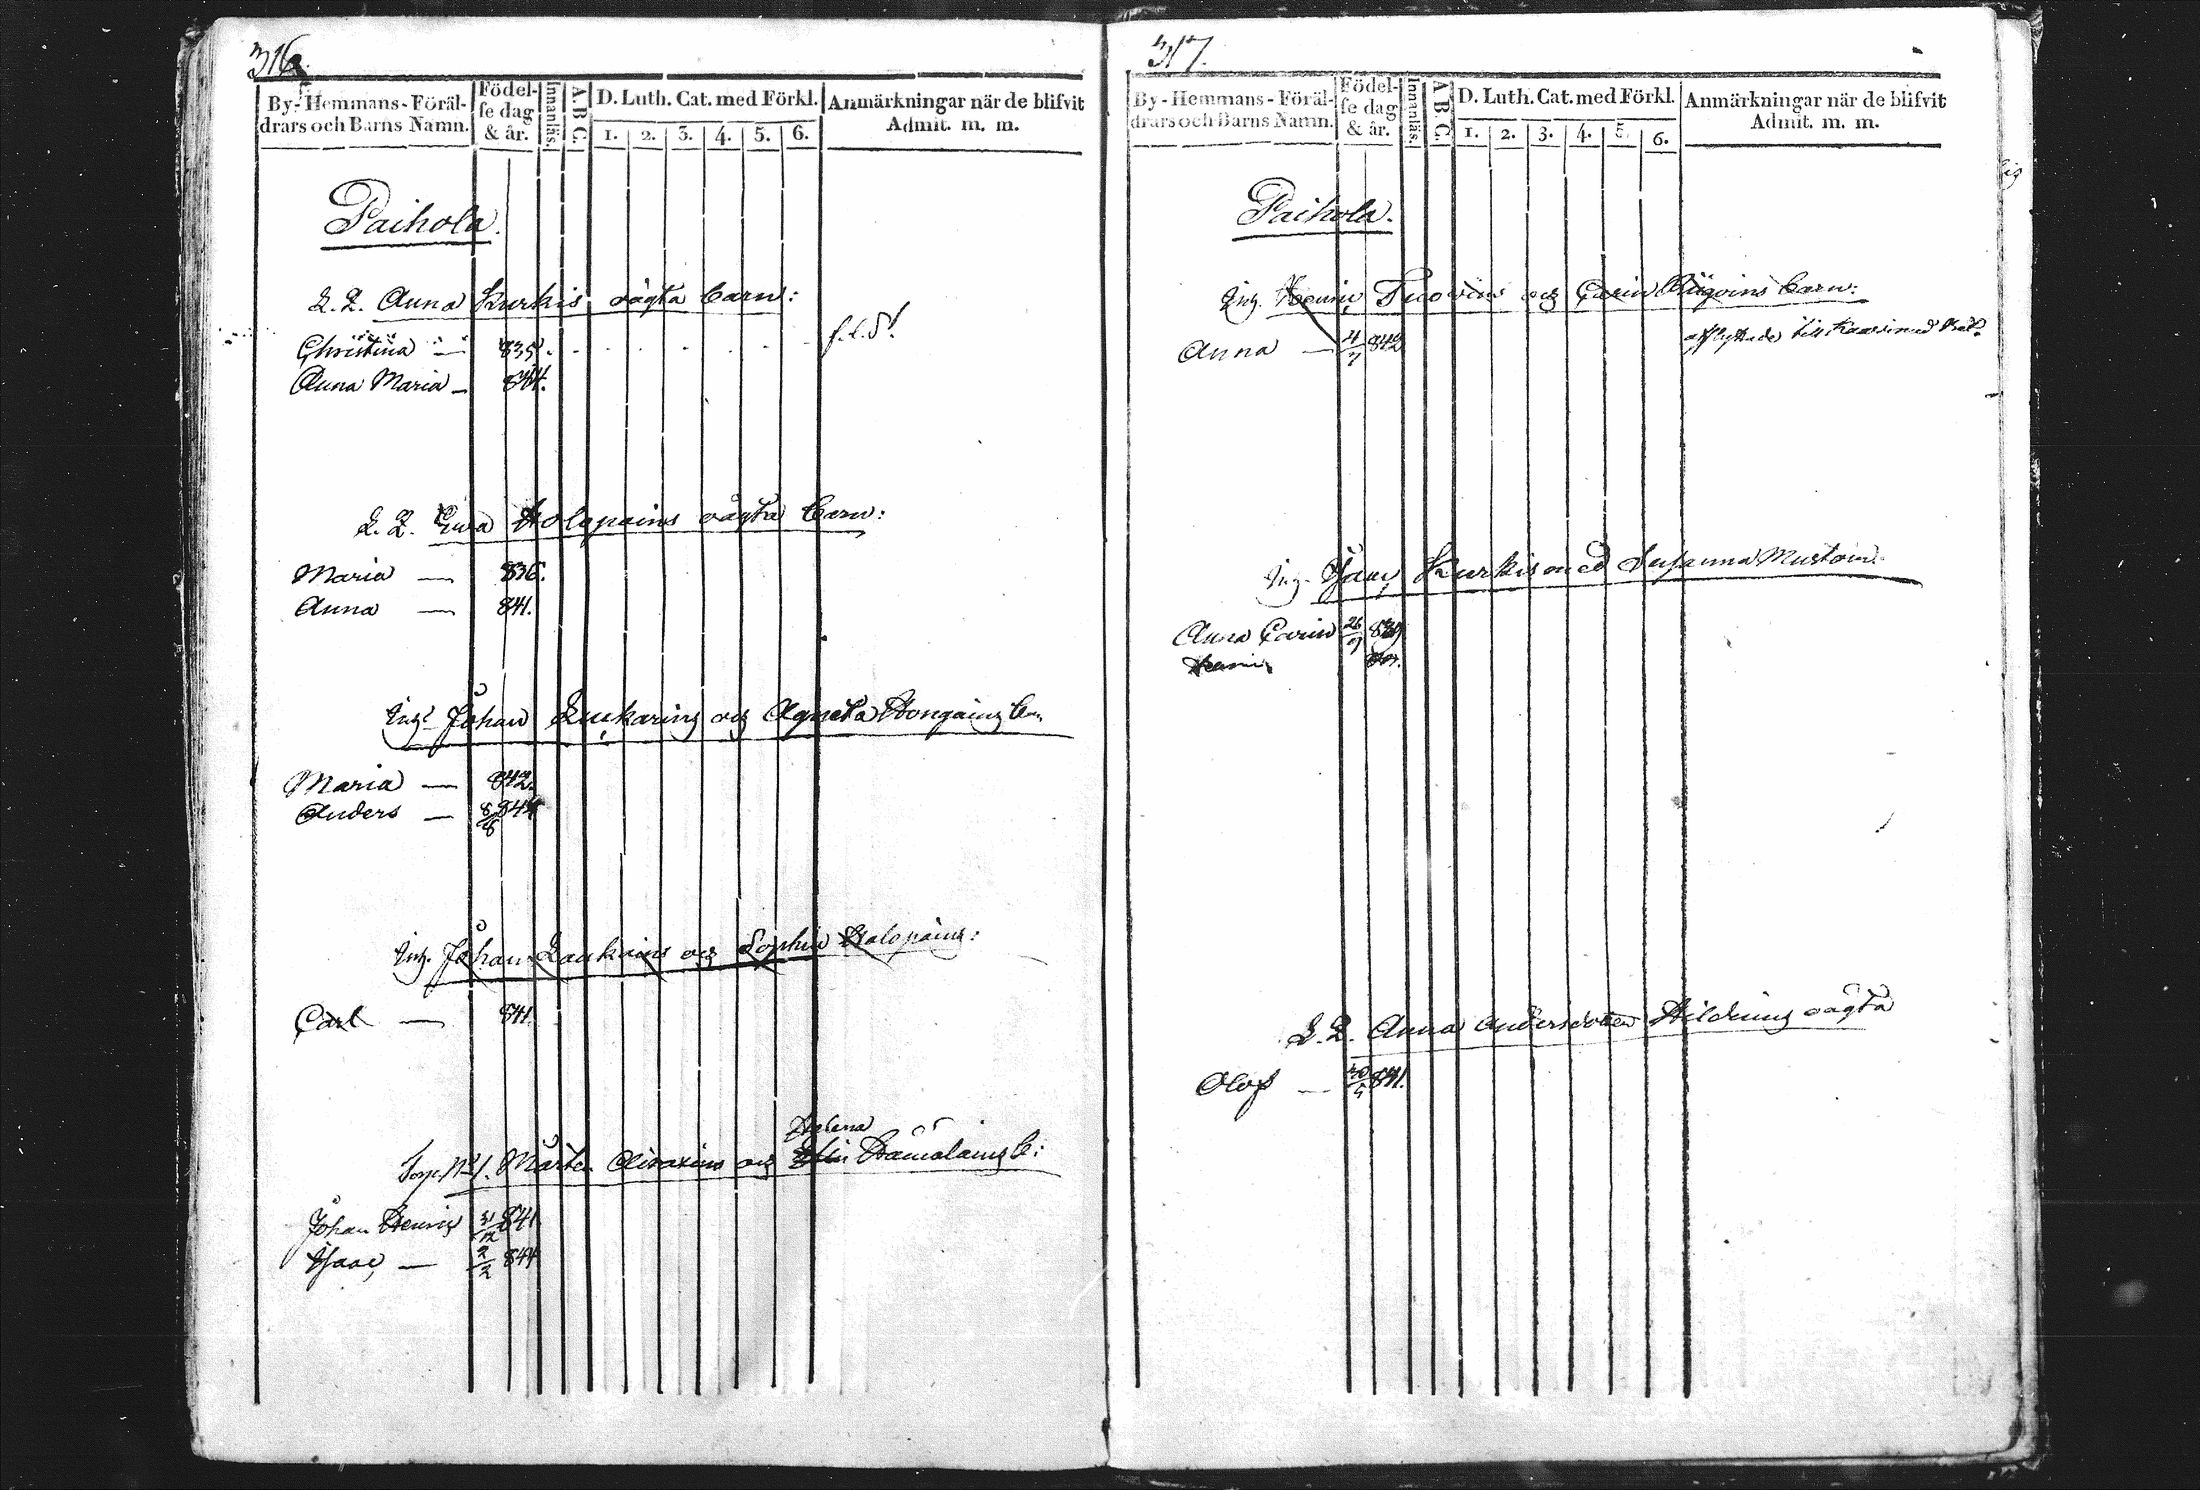 316.
By-Hemmans-Föräl-
drars och Barns Namn.
Födel-
se dag
& år.
Innanläs.
A.B.C.
D. Luth. Cat. med Förkl.
1. 2. 3. 4. 5. 6.
Anmärkningar när de blifvit
Admit. m. m.
Paihola.
L. L. Anna Kurkis oägta barn:
Christina — 835.
Anna Maria — 844.
L. L. Eva Holopains oägta barn:
Maria — 836.
Anna — 841.
Johan och Agneta
Maria — 842.
Anders — 8/8 844
Inh. Johan Laukains och Sophia Holopains:
Carl — 841.
Torp. N:o 1. Mårten och Helena Hämäläins b:
Johan Henric 31/12 841
Isaac — 2/2 844
317.
By-Hemmans-Föräl-
drars och Barns Namn.
Födel-
se dag
& år.
Innanläs.
A.B.C.
D. Luth. Cat. med Förkl.
1. 2. 3. 4. 5. 6.
Anmärkningar när de blifvit
Admit. m. m.
Paihola.
Inh. Henric Tuovins och Carin barn:
Anna — 4/7 842
afflyttade till
Inh. Isaac Kurkis med Susanna Muston.
Anna Carin 26/9 839
L. L. Anna Andersdotter oägta
Olof — 30/5 841.